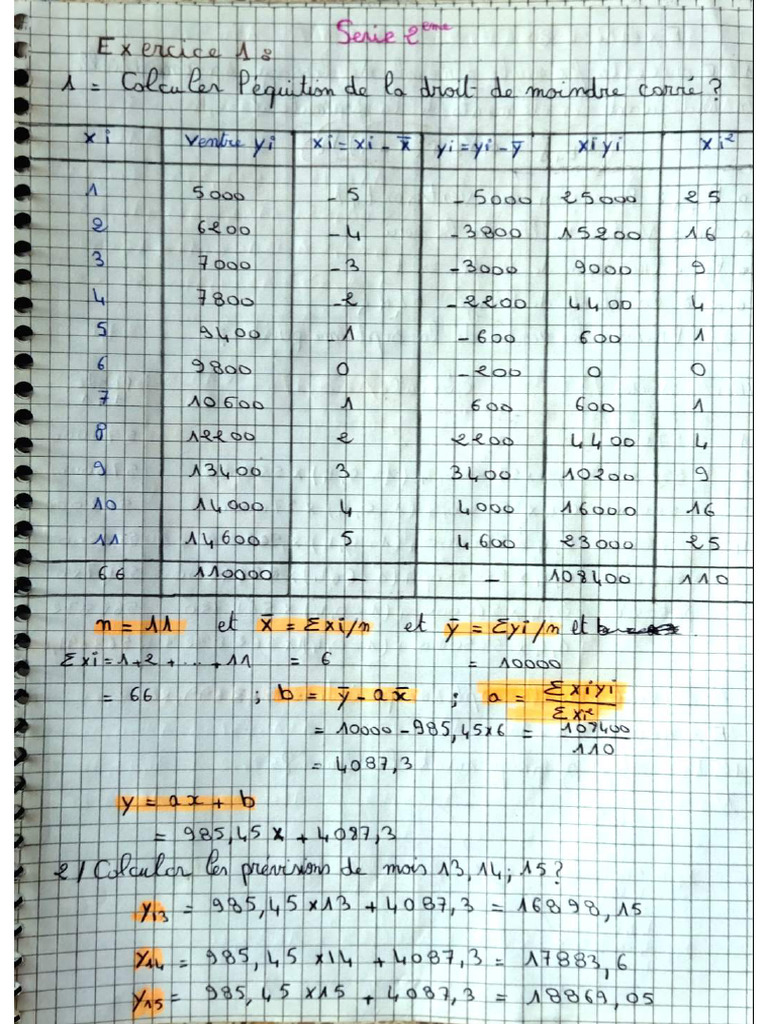 Serie 2eme
Exercice 1 :
1 = Calculer l'équition de la droit de moindre carré ?
xi ventre yi xi = xi - x̄ yi = yi - ȳ xiyi xi²
1 5000 -5 -5000 25000 25
2 6200 -4 -3800 15200 16
3 7000 -3 -3000 9000 9
4 7800 -2 -2200 4400 4
5 9400 -1 -600 600 1
6 9800 0 -200 0 0
7 10600 1 600 600 1
8 12200 2 2200 4400 4
9 13400 3 3400 10200 9
10 14000 4 4000 16000 16
11 14600 5 4600 23000 25
66 110000 — — 108400 110
n = 11 et x̄ = Σxi/n et ȳ = Σyi/n et
Σxi = 1+2+...+11 = 6 = 10000
= 66 ; b = ȳ - ax̄ ; a = Σxiyi / Σxi²
= 10000 - 985,45x6 = 108400 / 110
= 4087,3
y = ax + b
= 985,45 x + 4087,3
2/ Calculer les prévisions de mois 13, 14 ; 15 ?
y13 = 985,45 x13 + 4087,3 = 16898,15
y14 = 985,45 x14 + 4087,3 = 17883,6
y15 = 985,45 x15 + 4087,3 = 18869,05